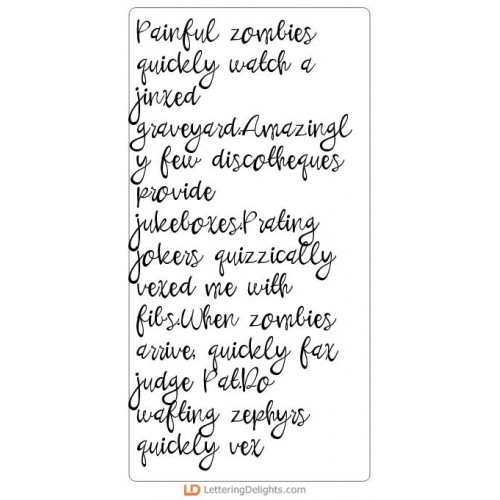 Painful zombies
quickly watch a
jinxed
graveyard.Amazingl
y few discotheques
provide
jukeboxes.Prating
jokers quizzically
vexed me with
fibs.When zombies
arrive, quickly fax
judge Pat.Do
wafting zephyrs
quickly vex
LD LetteringDelights.com